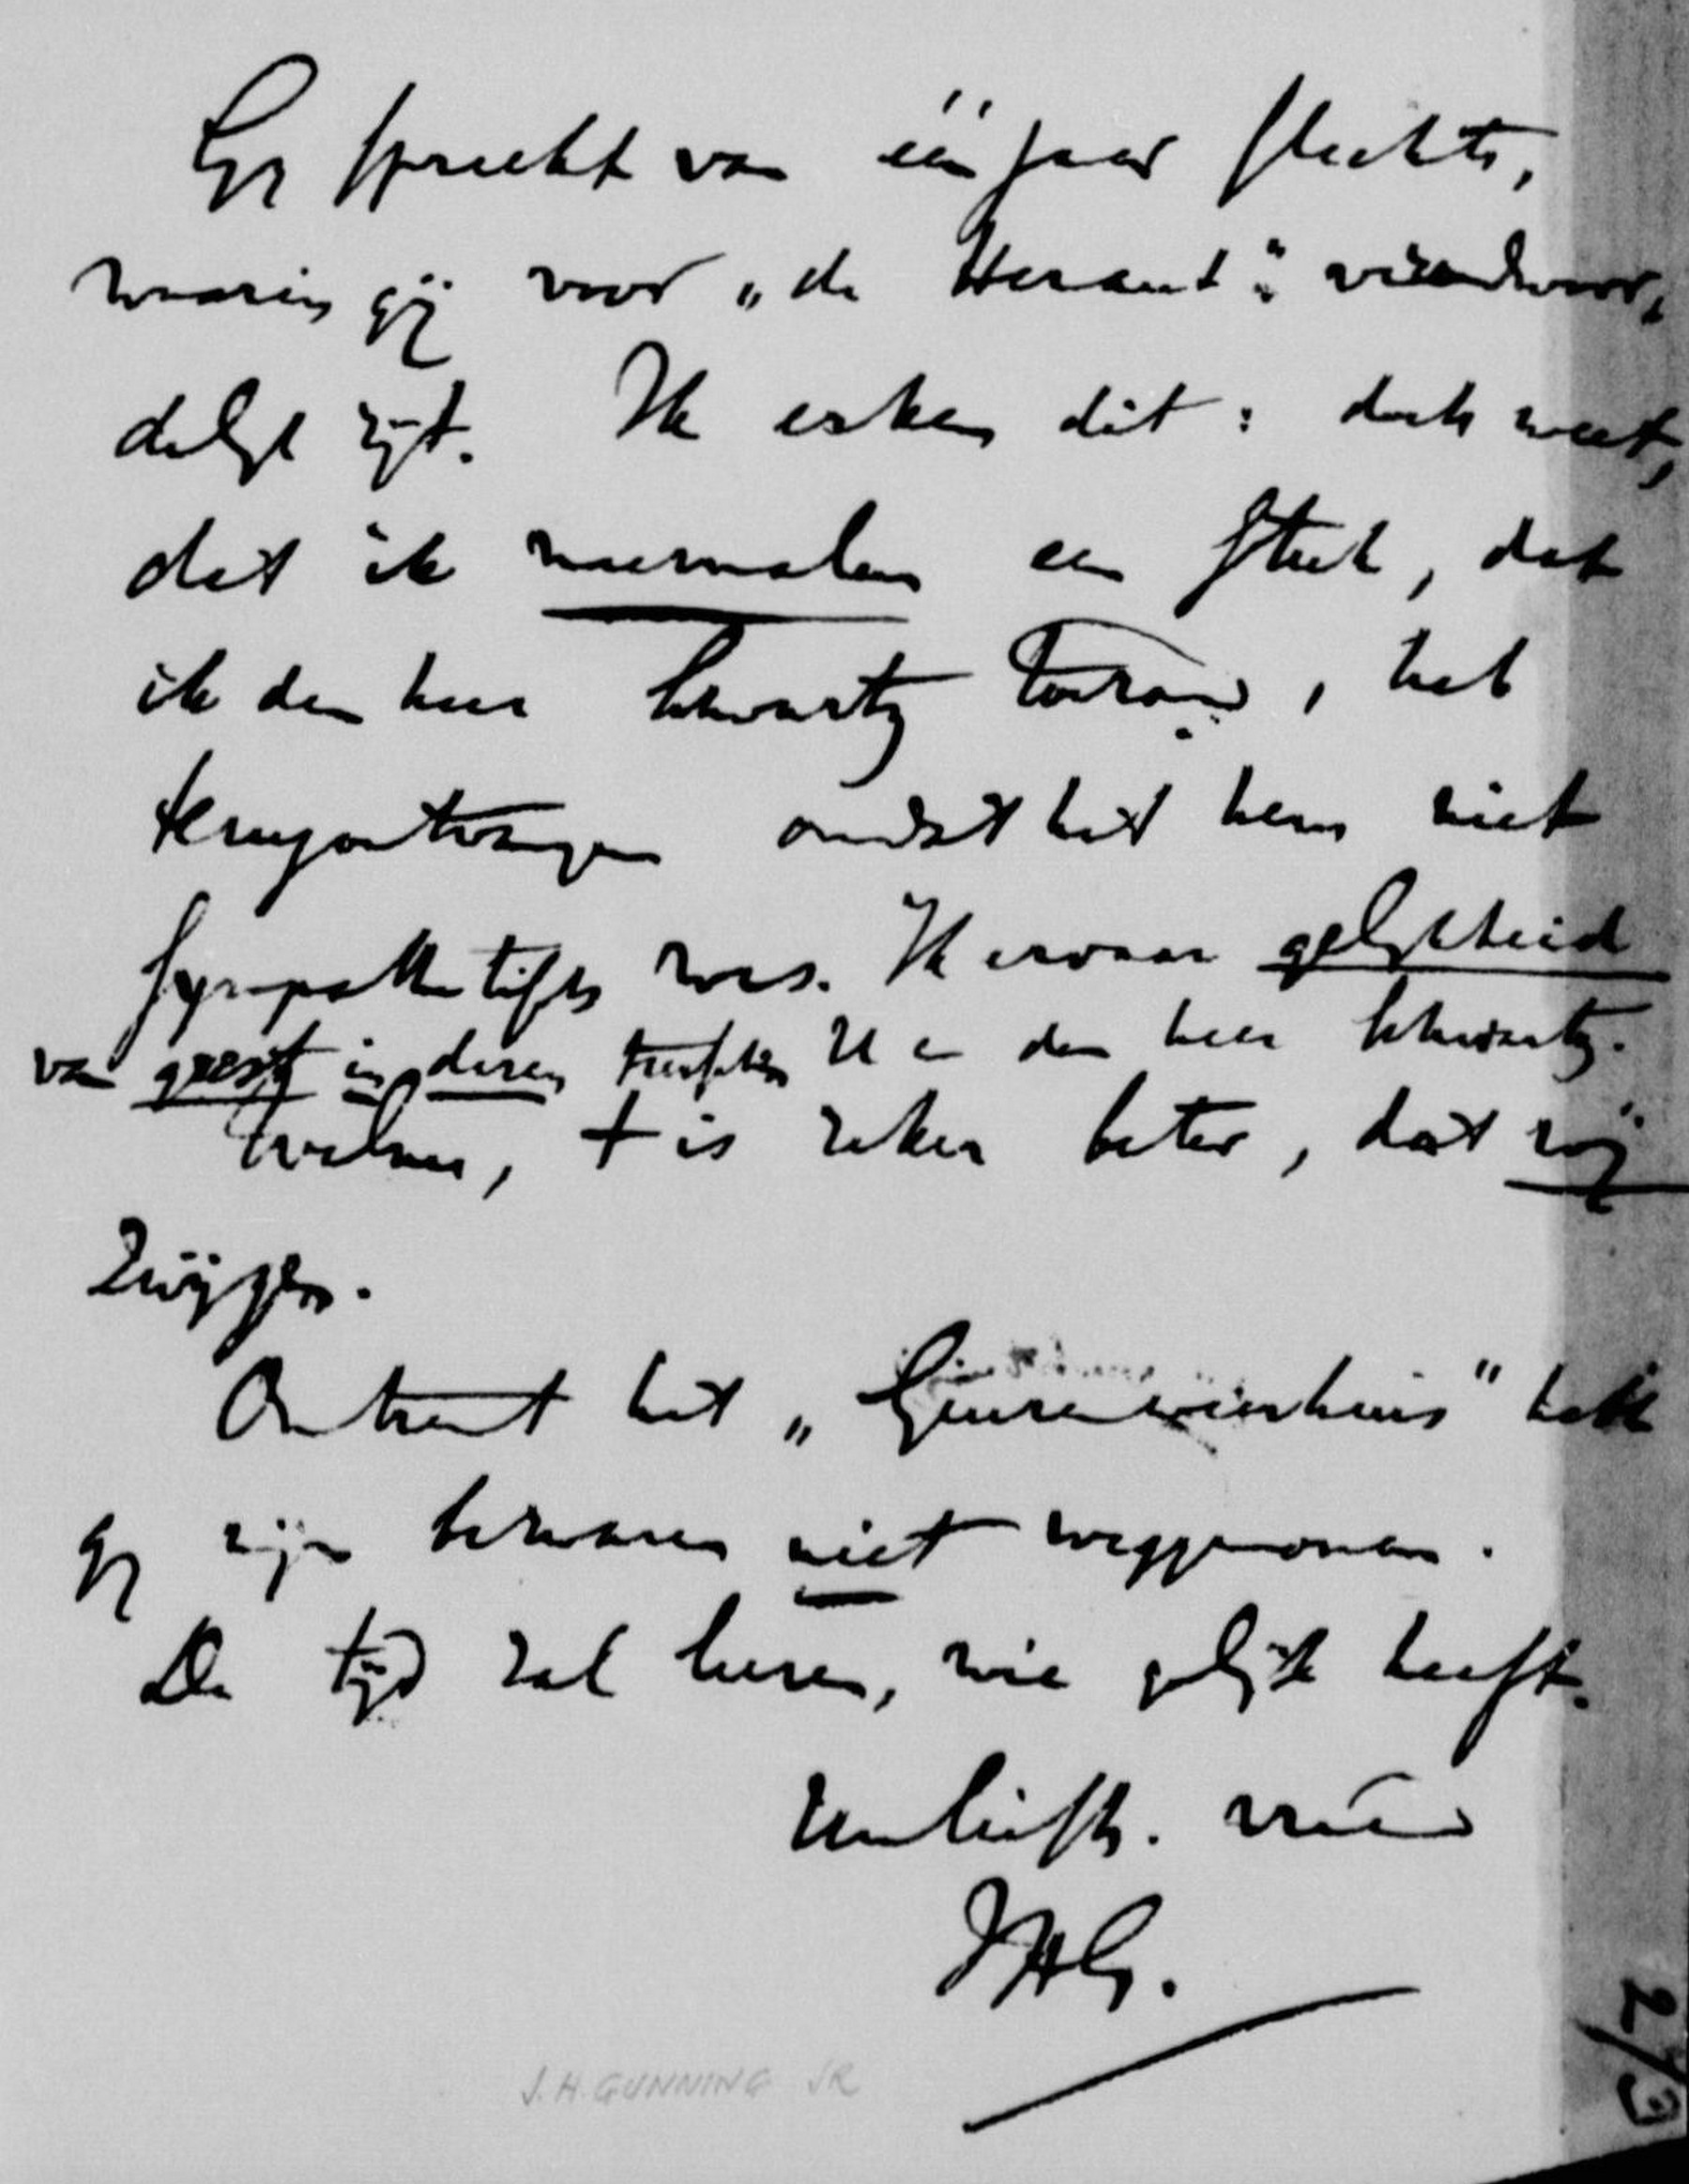 Gij spreekt van één jaar slechts,
waarin gij voor „de Heraut" verantwoor-
delijk zijt. Ik erken dit: doch weet,
dat ik meermalen een stuk, dat
ik den heer Schwartz toezond, heb
terugontvangen omdat het hem niet
sympathetisch was. Ik ervaar gelijkheid
van geest in dezen tusschen U en den heer Schwartz.
Welnu, 't is zeker beter, dat wij
zwijgen.
Omtrent het „Geuzenweeshuis" hebt
gij mijn bezwaren niet weggenomen.
De tijd zal leeren, wie gelijk heeft.
Uw liefh. vriend
JHG.
J.H. GUNNING JR
2/3